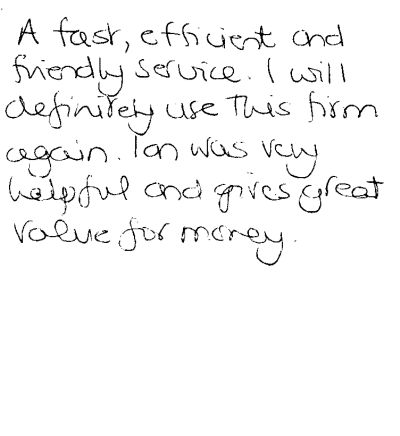 A fast, efficient and
friendly service. I will
definitely use This firm
again. Ian was very
helpful and gives great
value for money.